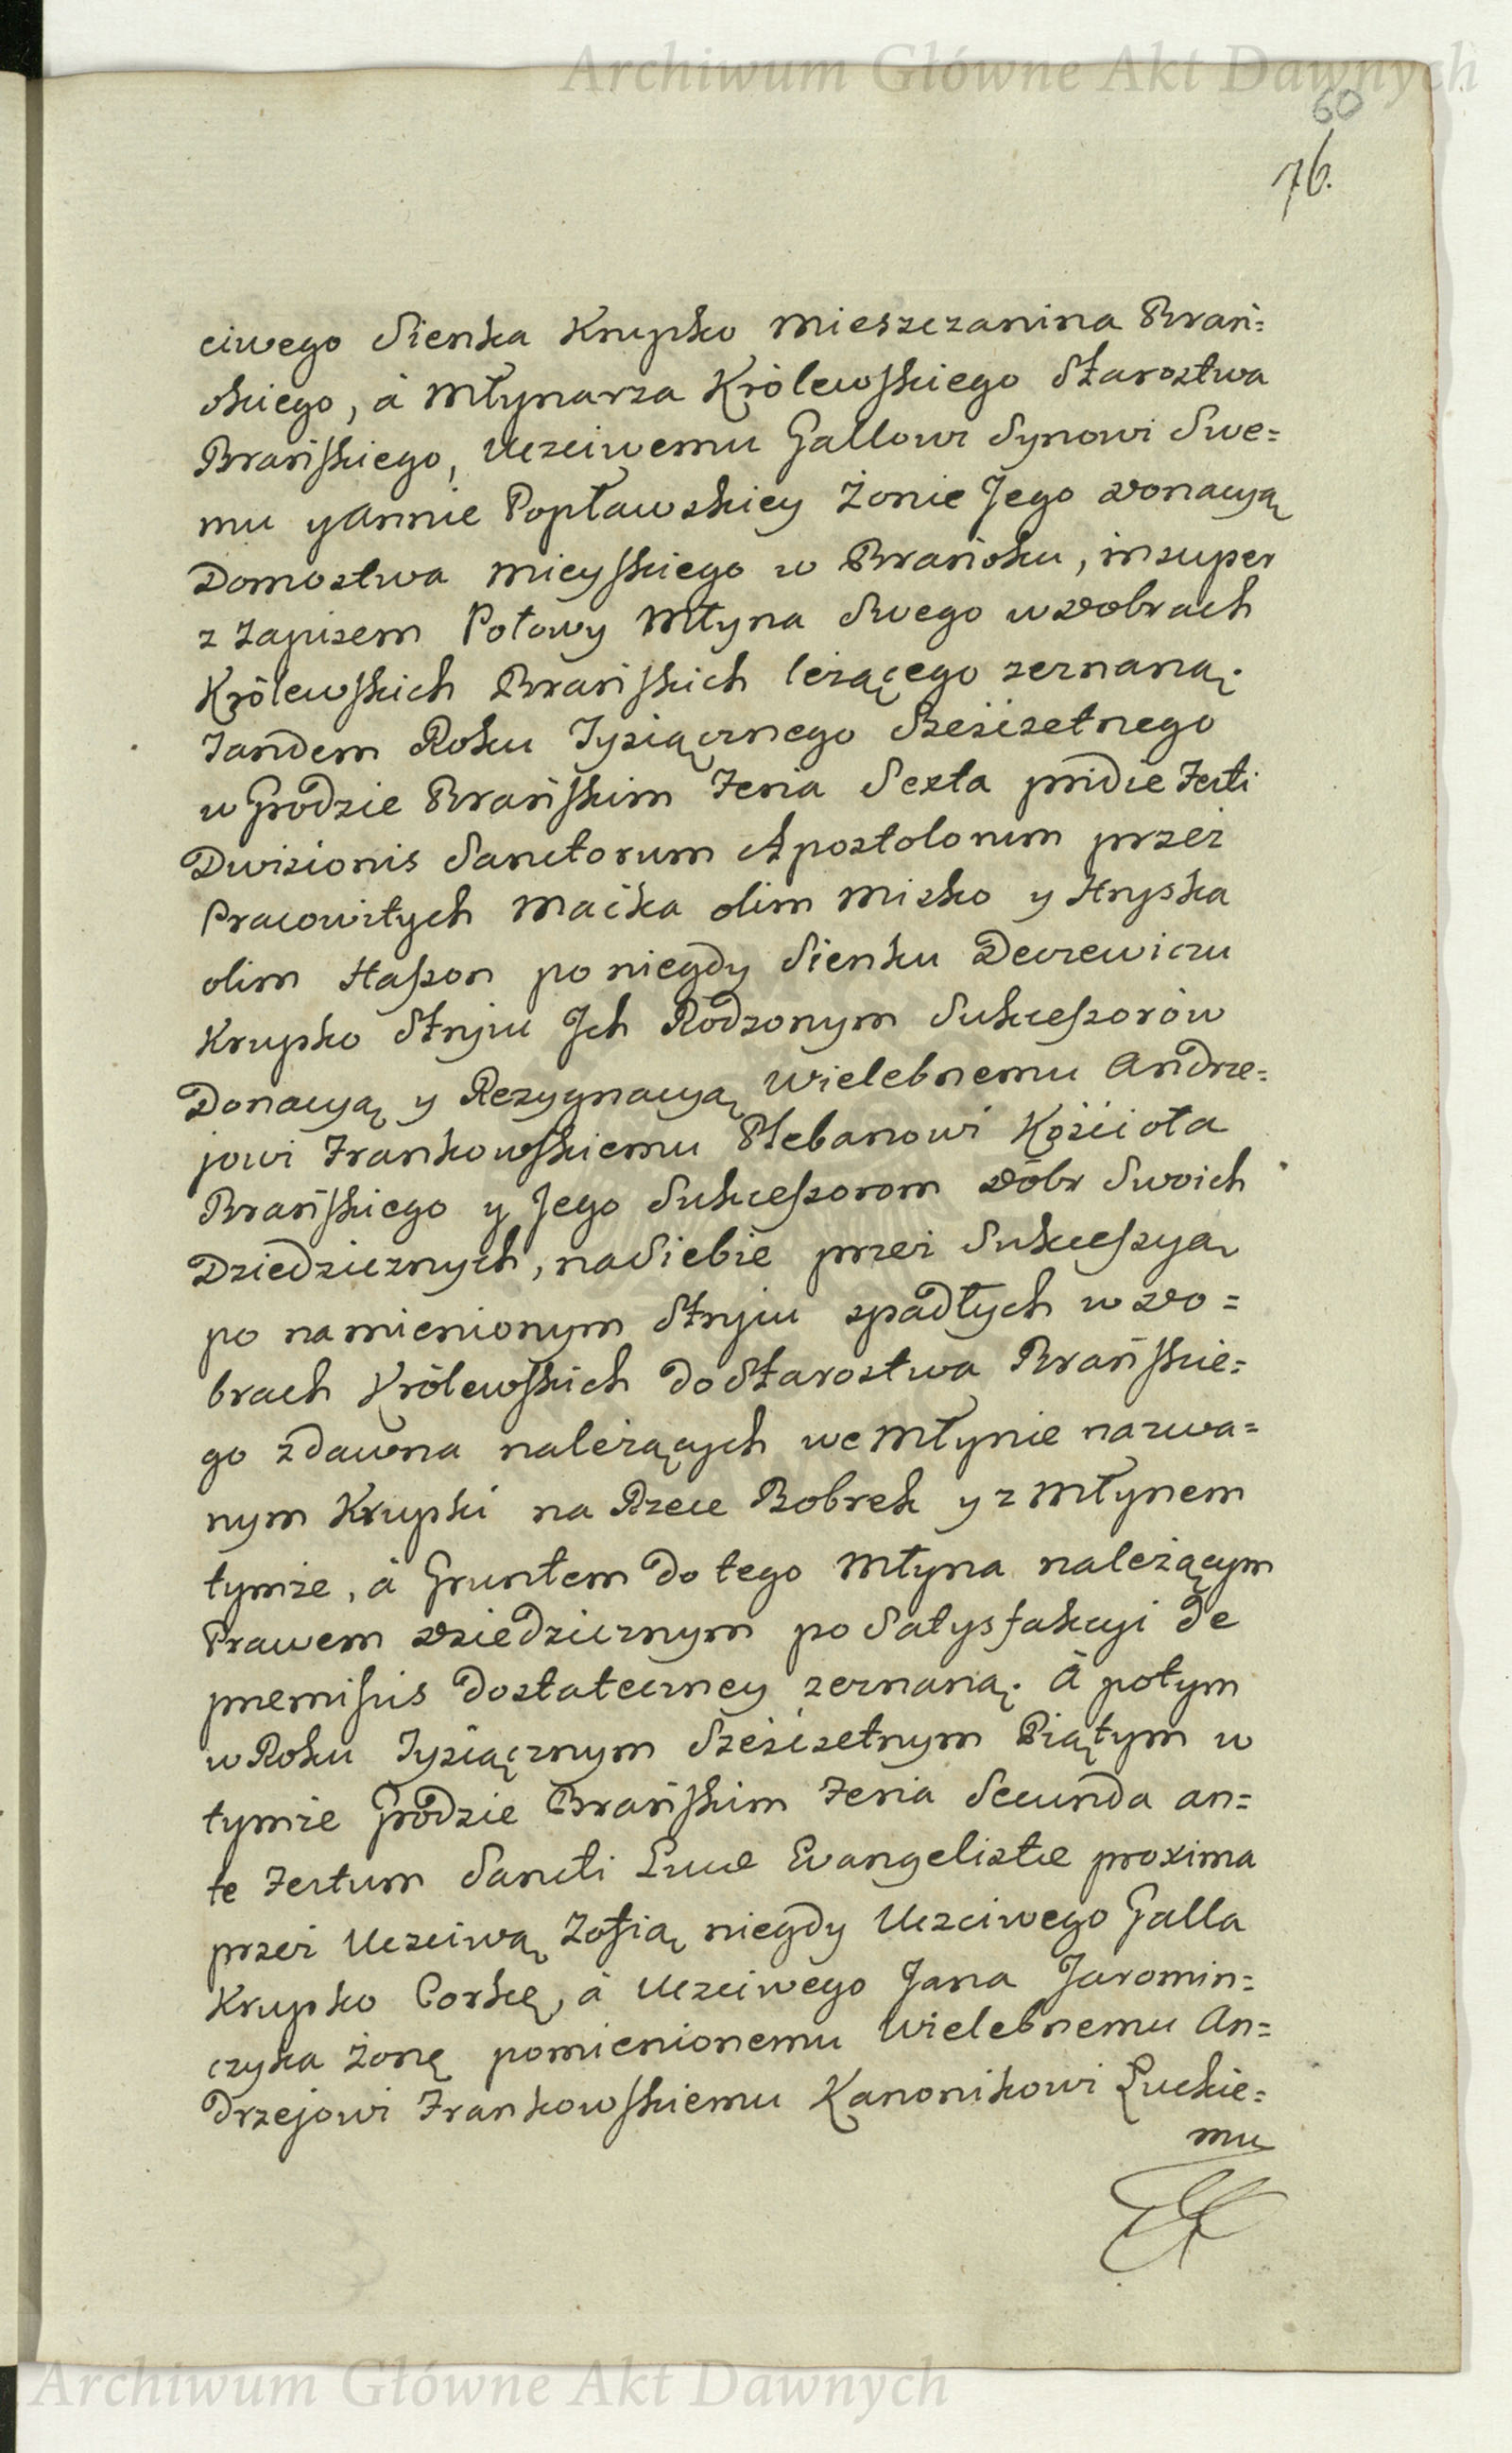 Archiwum Główne Akt Dawnych
60
76.
ciwego Sienka Krupko Mieszczanina Brań=
skiego, á Młynarza Królewskiego Starostwa
Brańskiego, Uczciwemu Gallowi Synowi Swe=
mu y Annie Popławskiey Żonie Jego Donacyą
Domostwa Mieyskiego w Brańsku, insuper
z Zapisem Połowy Młyna Swego w Dobrach
Królewskich Brańskich leżącego zeznaną.
Tandem Roku Tysiącznego Sześćsetnego
w Grodzie Brańskim Feria Sexta pridie Festi
Divisionis Sanctorum Apostolorum przez
Pracowitych Maćka olim Misko y Hryska
olim Haszon po niegdy Sienku Deczewiczu
Krupko Stryiu Ich Rodzonym Sukcessorów
Donacyą y Rezygnacyą Wielebnemu Andrze=
jowi Frankowskiemu Plebanowi Kościoła
Brańskiego y Jego Sukcessorom Dóbr Swoich
Dziedzicznych, na Siebie przez Sukcessyą
po namienionym Stryiu spadłych w Do=
brach Królewskich do Starostwa Brańskie=
go zdawna należących we Młynie nazwa=
nym Krupki na Rzece Bobrek y z Młynem
tymże, á Gruntem do tego Młyna należącym
Prawem Dziedzicznym po Satysfakcyi de
premissis dostateczney zeznaną. A potym
w Roku Tysiącznym Sześćsetnym Piątym w
tymże Grodzie Brańskim Feria Secunda an=
te Festum Sancti Lucæ Evangelistæ proxima
przez Uczciwą Zofią niegdy Uczciwego Galla
Krupko Corkę, á Uczciwego Jana Jaromin=
czyka Żonę pomienionemu Wielebnemu An=
drzejowi Frankowskiemu Kanonikowi Łuckie=
mu
Archiwum Główne Akt Dawnych